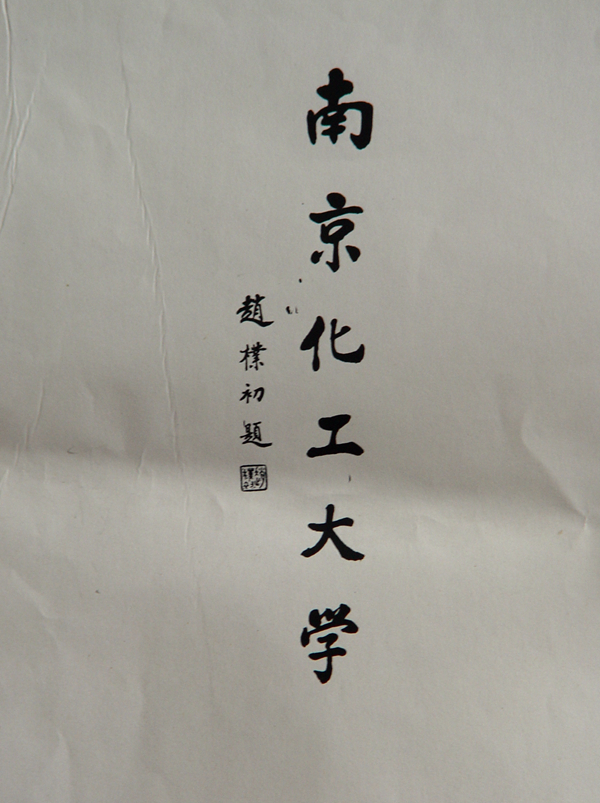 南京化工大学
趙樸初題